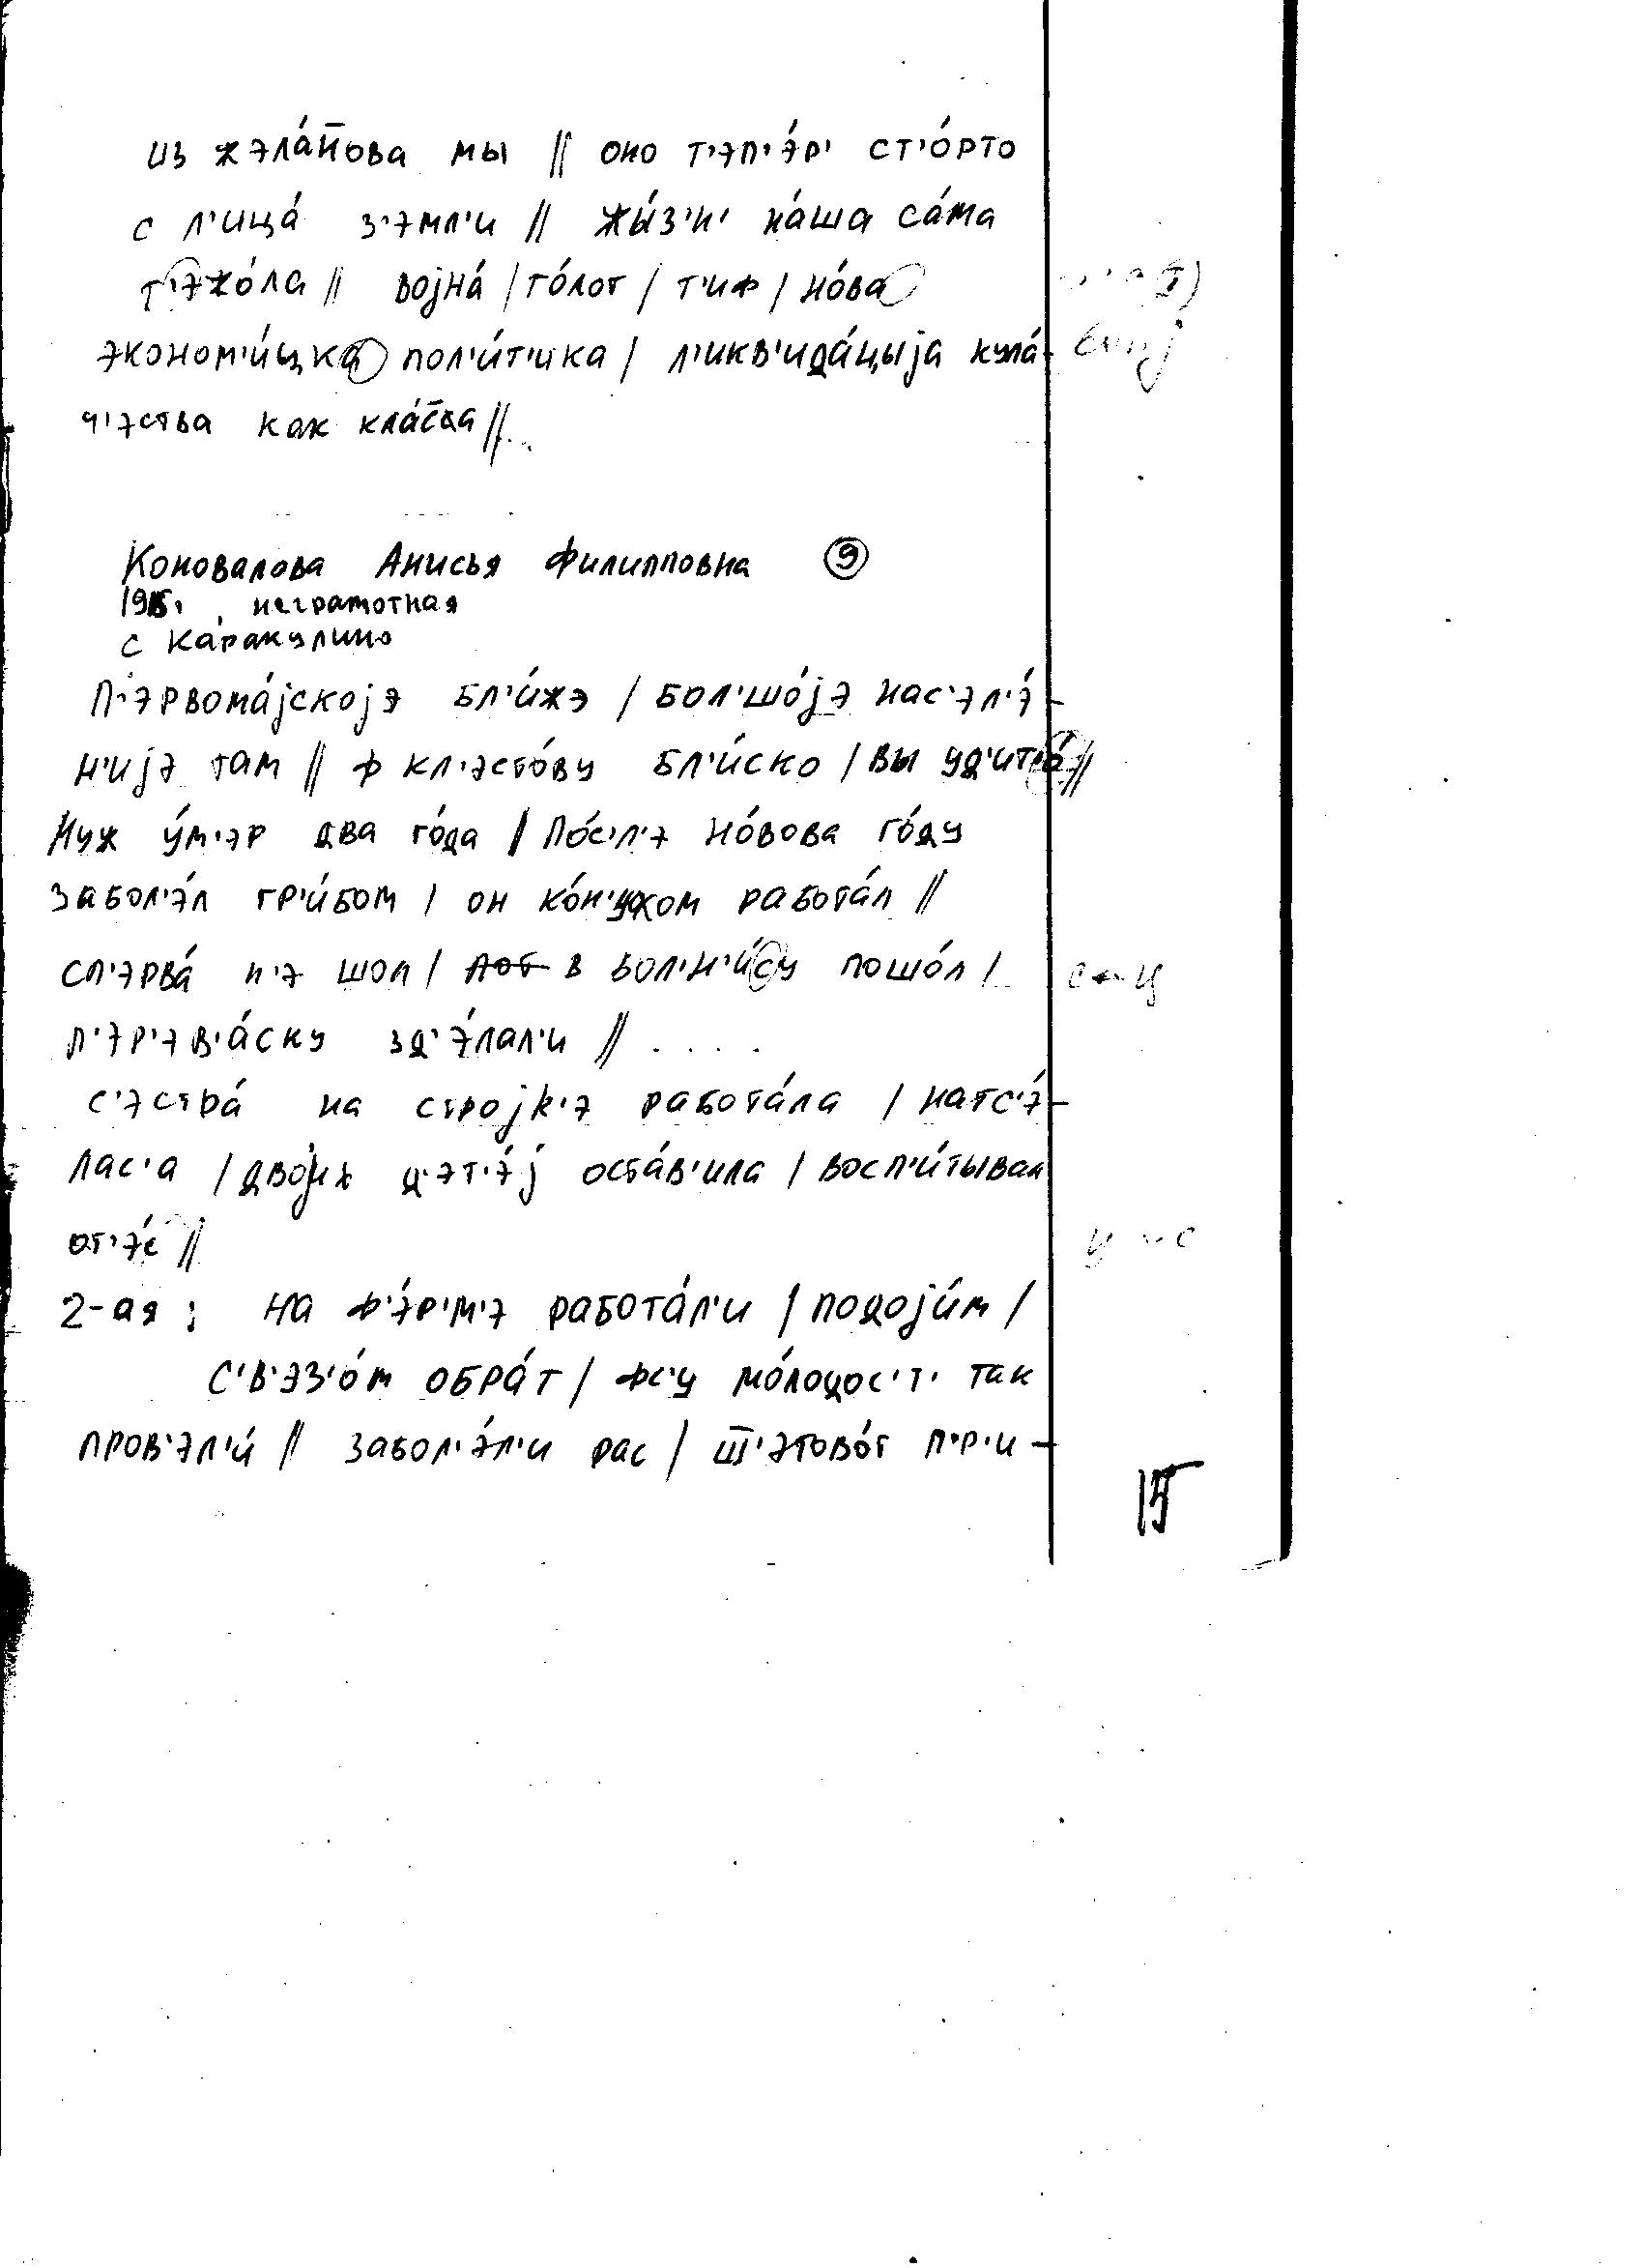 из жэла́н̄ова мы // оно т'эп'э́р' ст'о́рто
с л'ица́ з'эмл'и // жы́з'н' на́ша са́ма
т'эжо́ла // војна́ / го́лот / т'иф / но́ва
экономи́цка пол'и́т'ика / л'икв'ида́цыја кула́-
ч'эства как кла́с̄а //...
Коновалова Анисья Филипповна 9
неграмотная
с Каракулино
П'эрвома́јскојэ бл'и́жэ / бол'шо́јэ нас'эл'э́-
н'ијэ там // ф кл'эсто́ву бл'и́ско / вы
Муж у́м'эр два го́да / по́с'л'э но́вова го́ду
забол'э́л гр'и́бом / он ко́н'ухом рабо́та́л //
сп'эрва́ н'э шол / в бол'н'и́су пошо́л /
п'эр'эв'а́ску зд'э́лал'и // ....
с'эстра́ на стројк'э работа́ла / натс'э́-
лас'а / двојих д'эт'э́ј оста́в'ила / восп'и́тывал
от'э́с //
2-ая: на ф'э́р'м'э работа́л'и / подоји́м /
с'в'эз'о́м обра́т / фс'у мо́лодос'т' так
пров'эл'и́ // забол'э́л'и рас / ш̄'этово́т п'р'и-
15
с ← ц